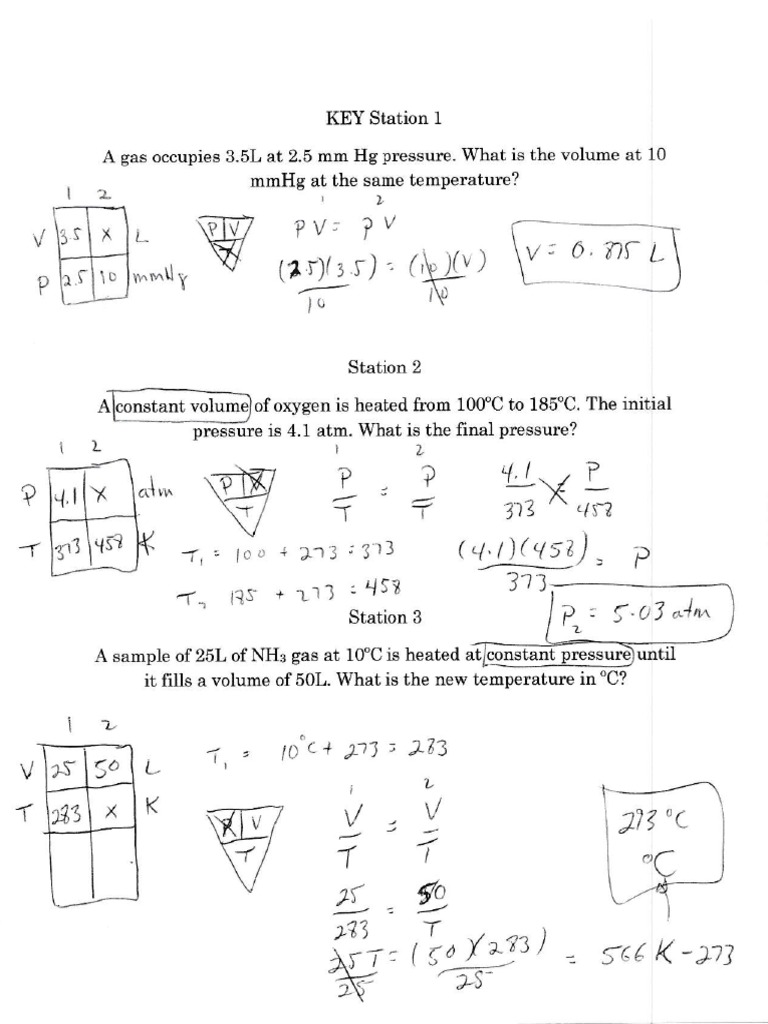 KEY Station 1
A gas occupies 3.5L at 2.5 mm Hg pressure. What is the volume at 10
mmHg at the same temperature?
1 2
V 3.5 X L
P 2.5 10 mmHg
P V T
1 2
PV = PV
(2.5)(3.5) = (10)(V)
10 10
V = 0.875 L
Station 2
A constant volume of oxygen is heated from 100ºC to 185ºC. The initial
pressure is 4.1 atm. What is the final pressure?
1 2
P 4.1 X atm
T 373 458 K
P V T
1 2
P = P
T T
4.1 = P
373 458
T₁ = 100 + 273 = 373
T₂ 185 + 273 = 458
(4.1)(458) = P
373
P₂ = 5.03 atm
Station 3
A sample of 25L of NH₃ gas at 10ºC is heated at constant pressure until
it fills a volume of 50L. What is the new temperature in ºC?
1 2
V 25 50 L
T 283 X K
T₁ = 10°C + 273 = 283
P V T
1 2
V = V
T T
25 = 50
283 T
25T = (50)(283) = 566 K - 273
25 25
293 °C
°C